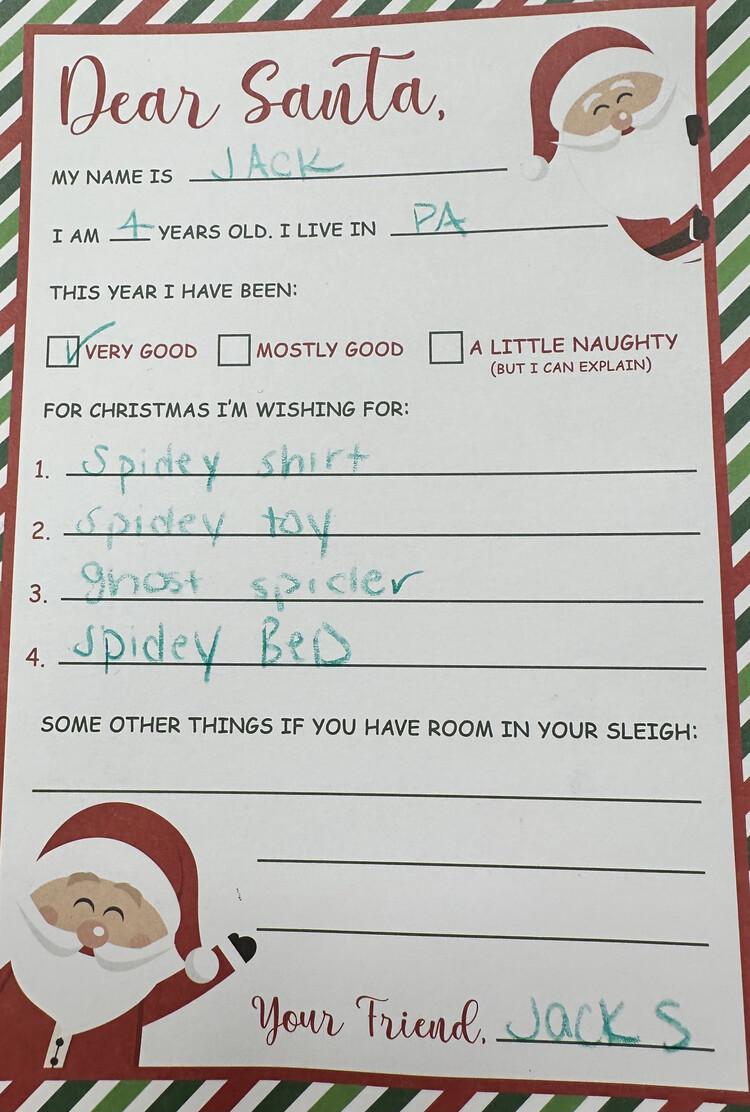 Dear Santa,
MY NAME IS JACK
I AM 4 YEARS OLD. I LIVE IN PA
THIS YEAR I HAVE BEEN:
VERY GOOD MOSTLY GOOD A LITTLE NAUGHTY
(BUT I CAN EXPLAIN)
FOR CHRISTMAS I'M WISHING FOR:
1. Spidey shirt
2. spidey toy
3. ghost spider
4. spidey BeD
SOME OTHER THINGS IF YOU HAVE ROOM IN YOUR SLEIGH:
Your Friend, Jack S